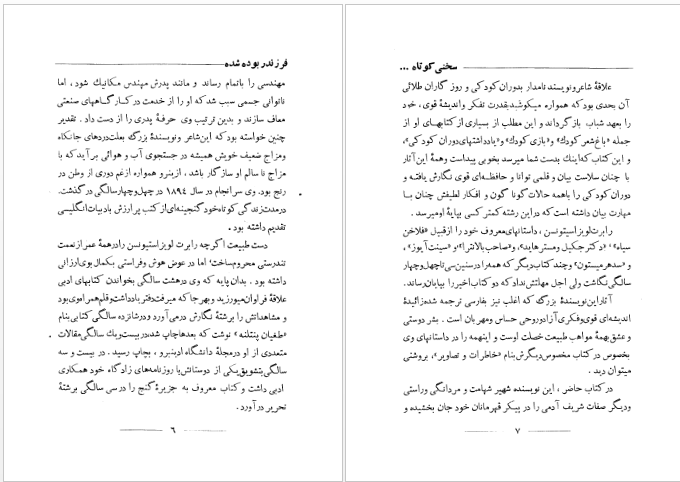 فرزند ربوده شده
مهندسی را باتمام رساند و مانند پدرش مهندس مکانیك شود ، اما
ناتوانی جسمی سبب شد که او را از خدمت در کارگاههای صنعتی
معاف سازند و بدین ترتیب وی حرفهٔ پدری را از دست داد . تقدیر
چنین خواسته بود که این شاعر و نویسندهٔ بزرگ بعلت دردهای جانکاه
ومزاج ضعیف خویش همیشه در جستجوی آب و هوائی برآید که با
مزاج ناسالم او سازگار باشد . ازینرو همواره ازغم دوری از وطن در
رنج بود. وی سرانجام در سال ۱۸۹۴ در چهل‌وچهارسالگی درگذشت.
درمدت زندگی کوتاه خود گنجینه‌ای از کتب پر ارزش بادبیات انگلیسی
تقدیم داشته بود .
دست طبیعت اگرچه رابرت لویز استیونسن را درهمهٔ عمر از نعمت
تندرستی محروم ساخت، اما در عوض هوش و فراستی بکمال بوی ارزانی
داشته بود . بدان پایه که وی در هشت سالگی بخواندن کتابهای ادبی
علاقهٔ فراوان میورزید و بهر جا که میرفت دفتر یادداشت وقلم همراه وی بود
و مشاهداتش را برشتهٔ نگارش در می‌آورد و درشانزده سالگی کتابی بنام
«طغیان پنتلند» نوشت که بعدها چاپ شد، در بیست ویك سالگی مقالات
متعددی از او در مجلهٔ دانشگاه ادینبرو ، بچاپ رسید . در بیست و سه
سالگی بتشویق یکی از دوستانش با روزنامه‌های زادگاه خود همکاری
ادبی داشت و کتاب معروف به جزیرهٔ گنج را در سی سالگی برشتهٔ
تحریر در آورد .
۶
سخنی کوتاه ...
علاقهٔ شاعر و نویسنده نامدار بدوران کودکی و روزگاران طلائی
آن بحدی بود که همواره میکوشید بقدرت تفکر و اندیشهٔ قوی ، خود
را بعهد شباب بازگرداند و این مطلب از بسیاری از کتابهای او از
جمله «باغ شعر کودك» و «بازی کودك» و «یادداشتهای دوران کودکی»،
و این کتاب که اینك بدست شما میرسد بخوبی پیداست وهمهٔ این آثار
با چنان سلاست بیان و قلمی توانا و حافظه‌ای قوی نگارش یافته و
دوران کودکی را باهمه حالات گوناگون و افکار لطیفش چنان با
مهارت بیان داشته است که در این رشته کمتر کسی بپایهٔ او میرسد .
رابرت لویز استیونسن ، داستانهای معروف خود را از قبیل «فلاخن
سیاه» ، «دکتر جکیل ومسترهاید»، و«صاحب بالانترا» و «سینت آیوز» ،
و «سدهرمیستون» و چند کتاب دیگر که همه را در سنین سی تا چهل وچهار
سالگی نگاشت ولی اجل مهلتش نداد که دو کتاب اخیر را بپایان رساند.
آثار این نویسندهٔ بزرگ که اغلب نیز بفارسی ترجمه شده زائیدهٔ
اندیشه‌ای قوی وفکری آزاد و روحی حساس ومهربان است . بشر دوستی
و عشق بهمهٔ مواهب طبیعت خصلت اوست و اینهمه را در داستانهای وی
بخصوص در کتاب مخصوص دیگرش بنام «خاطرات و تصاویر»، بروشنی
میتوان دید .
در کتاب حاضر ، این نویسنده شهیر شهامت و مردانگی وراستی
ودیگر صفات شریف آدمی را در پیکر قهرمانان خود جان بخشیده و
۷